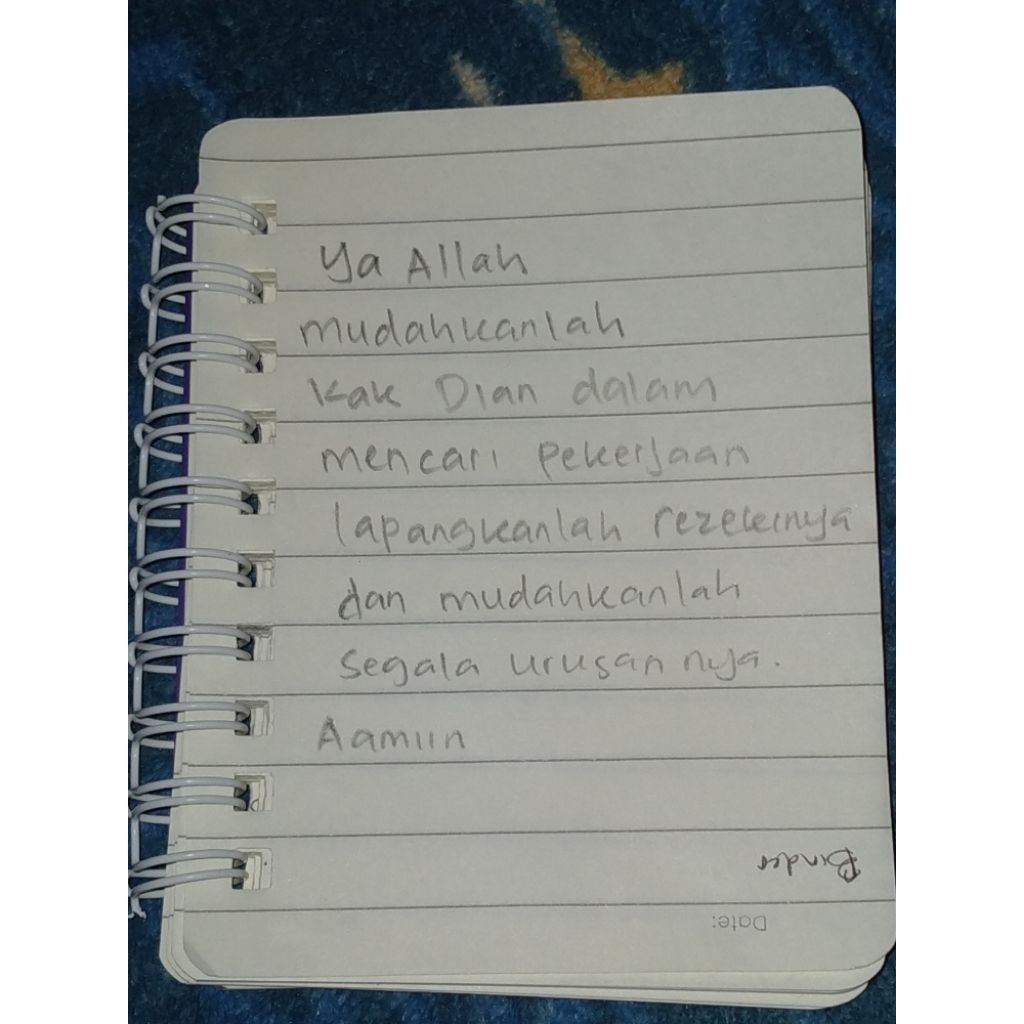 Ya Allah
mudahkanlah
Kak Dian dalam
mencari pekerjaan
lapangkanlah rezekinya
dan mudahkanlah
segala urusannya.
Aamiin
Binder
Date: